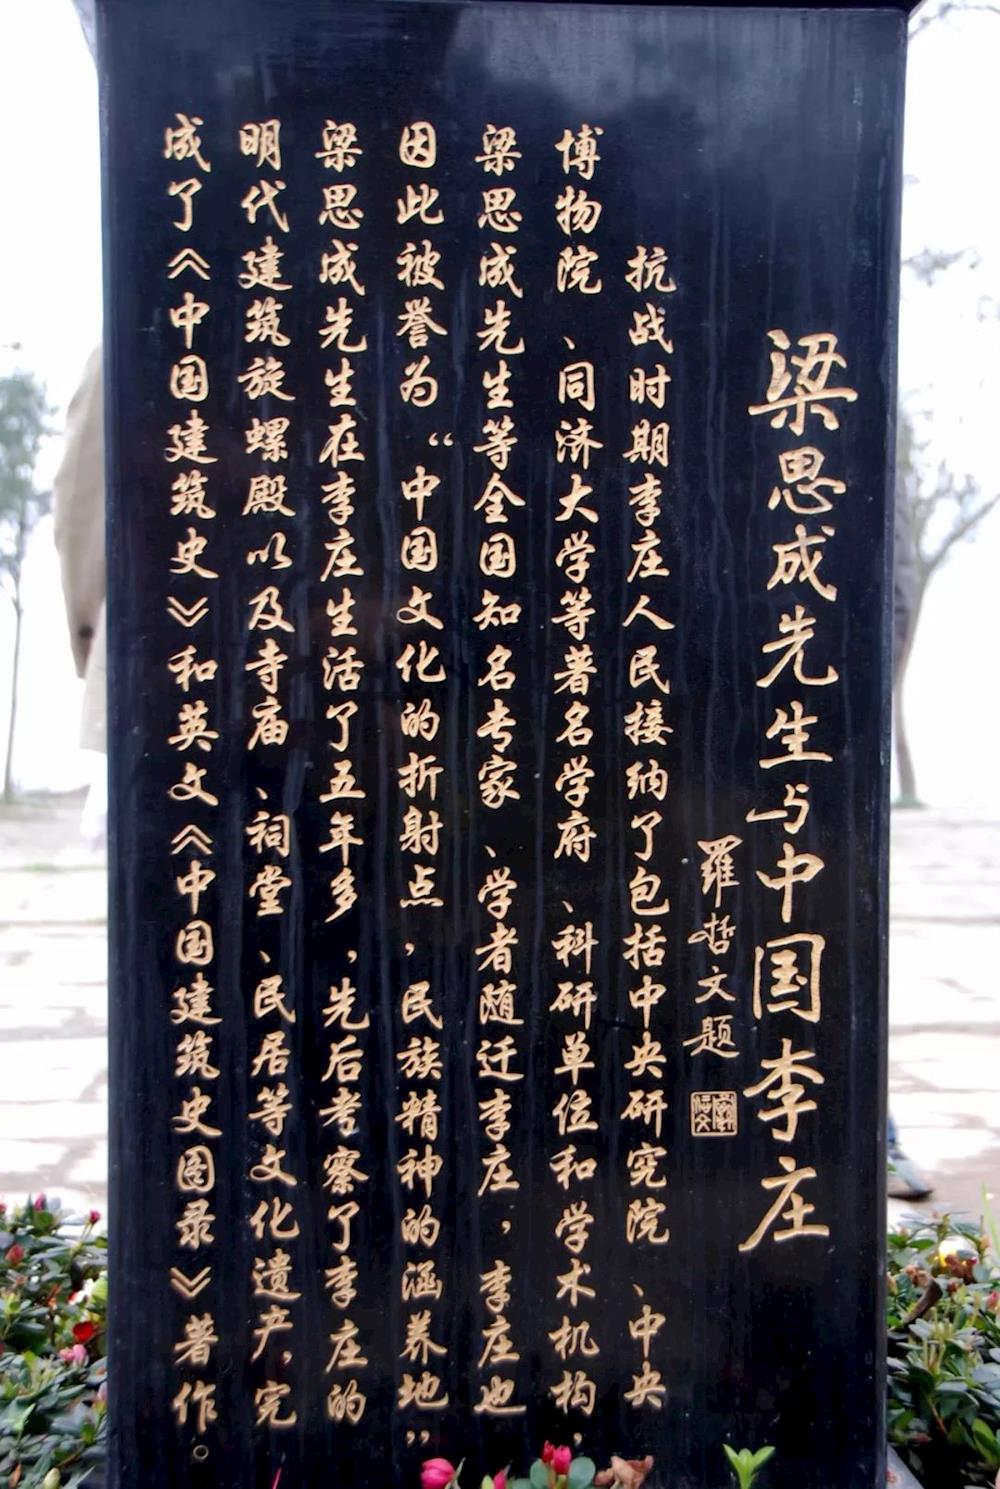 梁思成先生与中国李庄
羅哲文题
抗战时期李庄人民接纳了包括中央研究院、中央
博物院、同济大学等著名学府、科研单位和学术机构，
梁思成先生等全国知名专家、学者随迁李庄，李庄也
因此被誉为“中国文化的折射点，民族精神的涵养地”
梁思成先生在李庄生活了五年多，先后考察了李庄的
明代建筑旋螺殿以及寺庙、祠堂、民居等文化遗产，完
成了《中国建筑史》和英文《中国建筑史图录》著作。